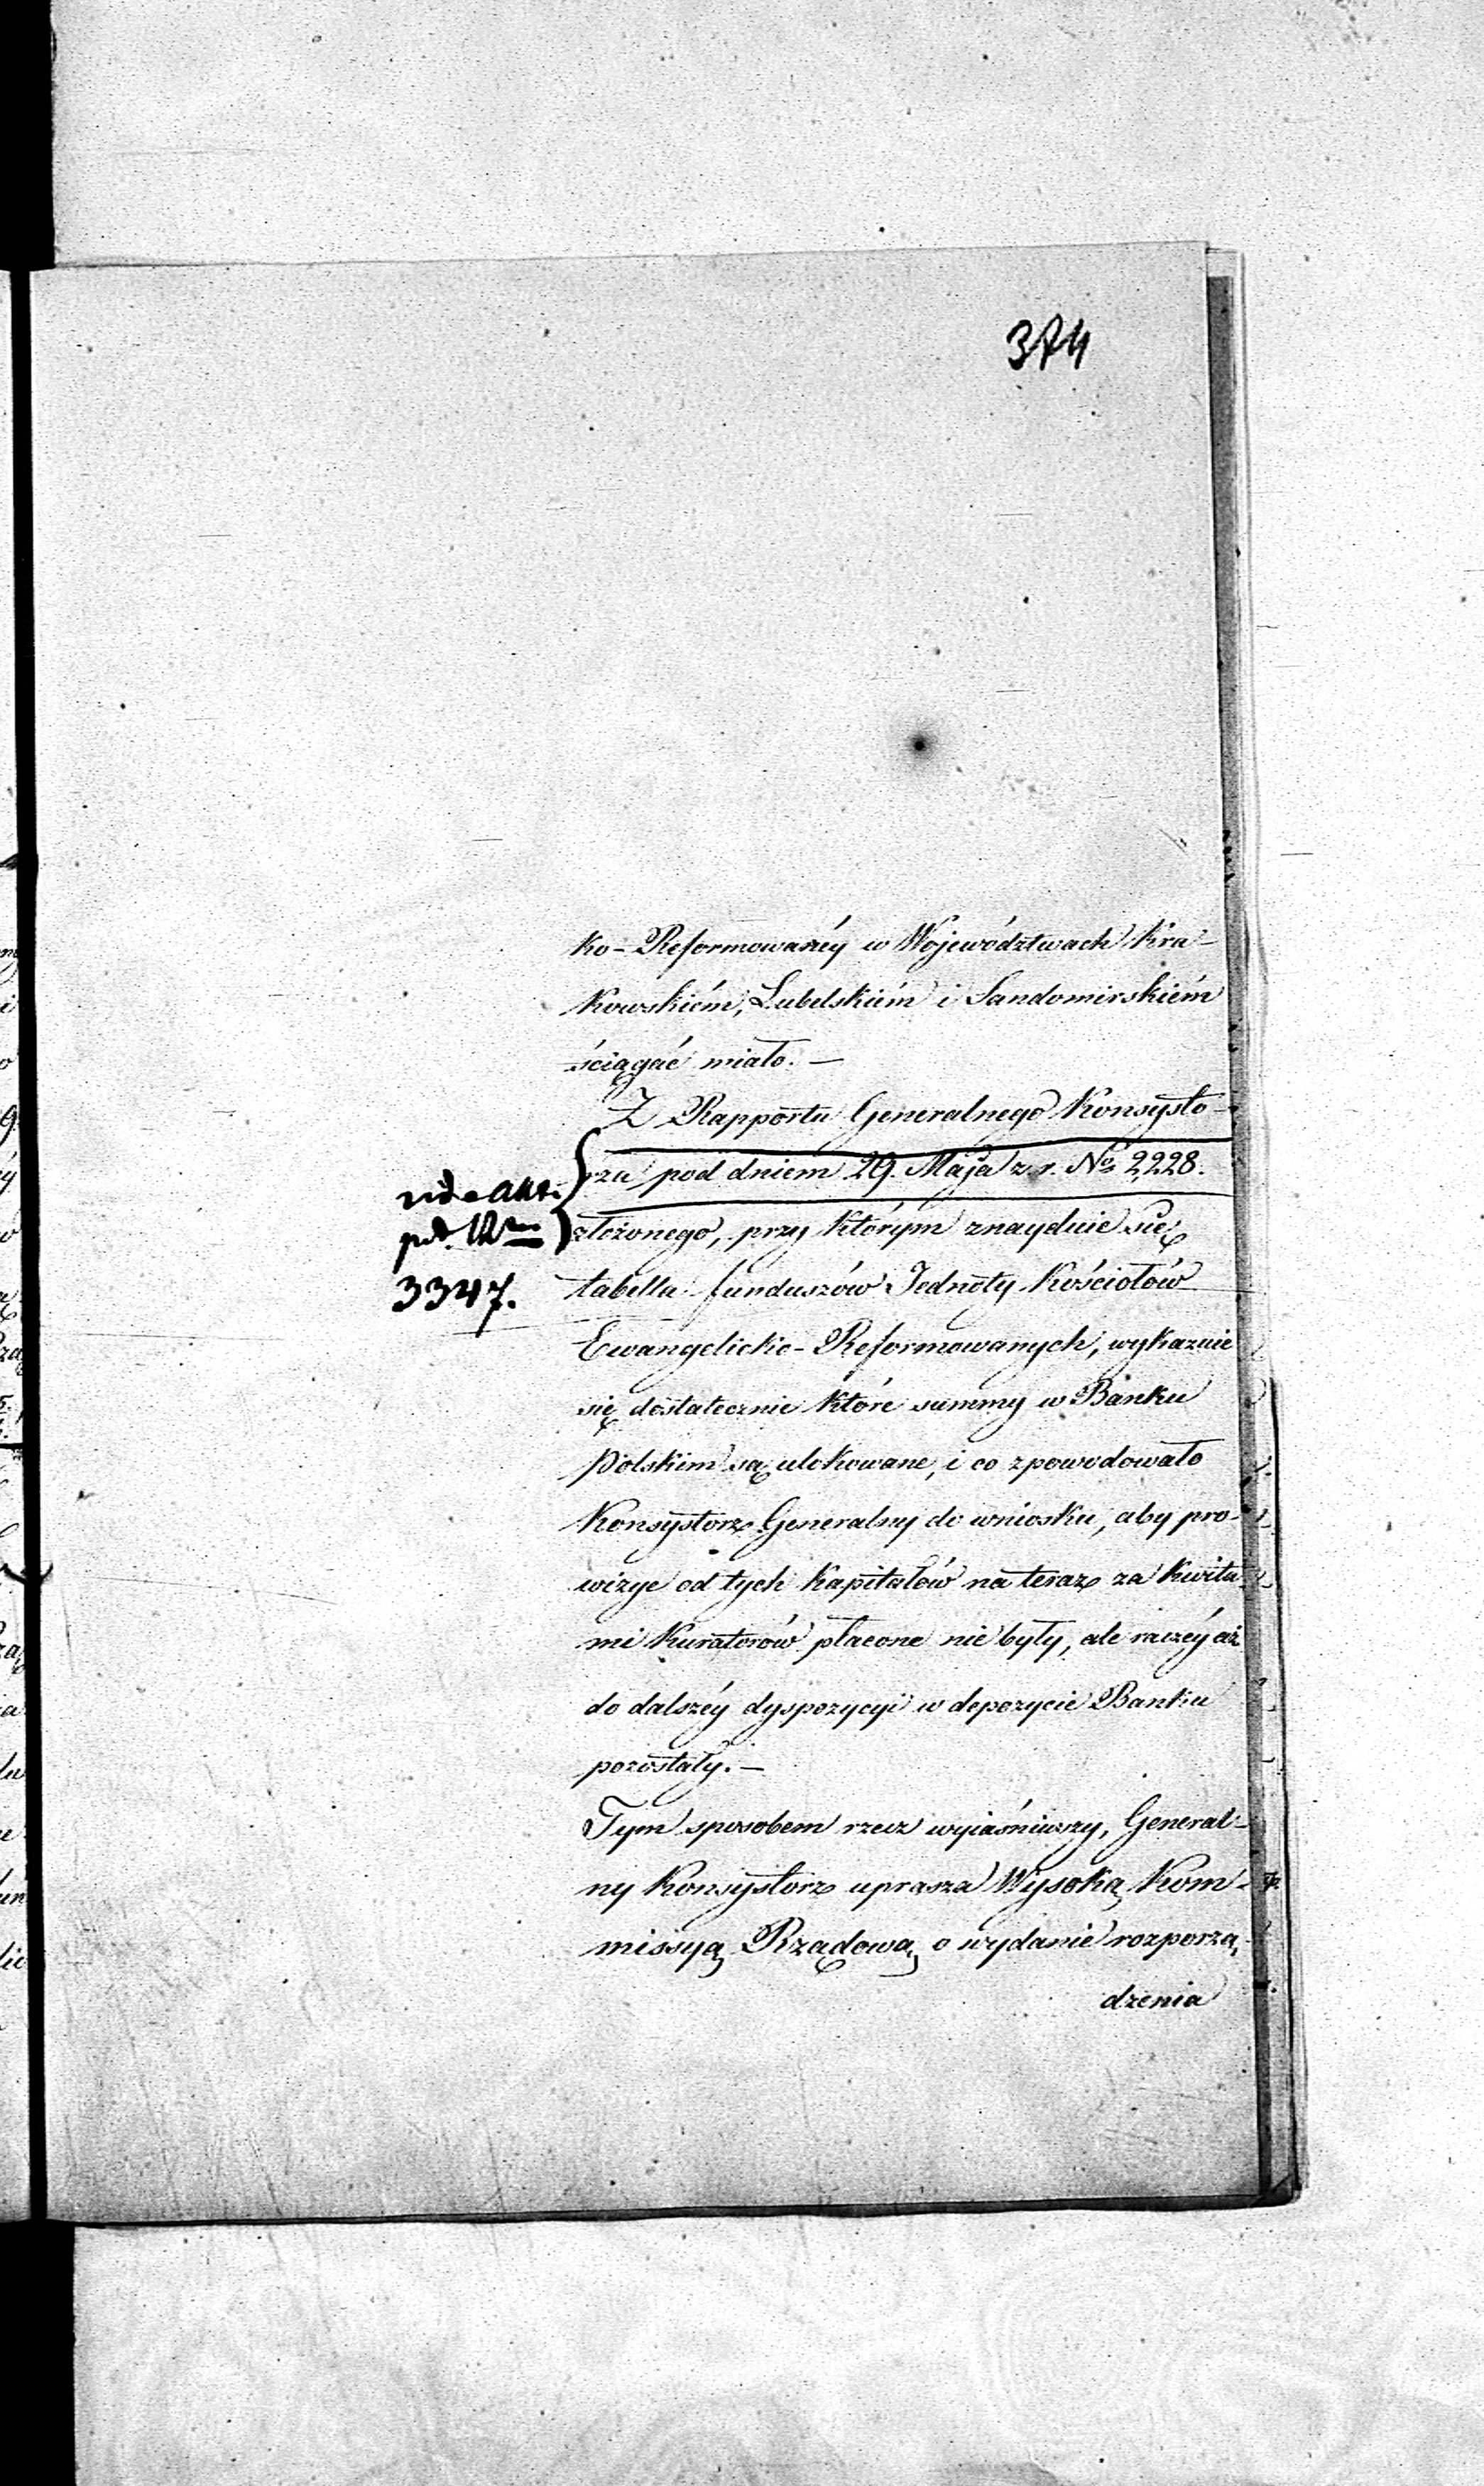 374
ko-Reformowanéy w Województwach Kra-
kowskiém, Lubelskiém i Sandomirskiém
ściągać miało. —
Z Rapportu Generalnego Konsysto-
rza pod dniem 29. Maja z. r. No 2,228.
złożonego, przy którym znayduie się
vide akt.
pod
3347.
tabella funduszów Jednoty Kościołów
Ewangelicko-Reformowanych, wykazuie
się dostatecznie które summy w Banku
Polskim są ulokowane, i co spowodowało
Konsystorz Generalny do wniosku, aby pro-
wizye od tych Kapitałów na teraz za kwita-
mi Kuratorów płacone nie były, ale raczéy aż
do dalszéy dyspozycyi w depozycie Banku
pozostały. —
Tym sposobem rzecz wyiaśniwszy, General-
ny Konsystorz uprasza Wysoką Kom-
missyą Rządową o wydanie rozporzą-
dzenia